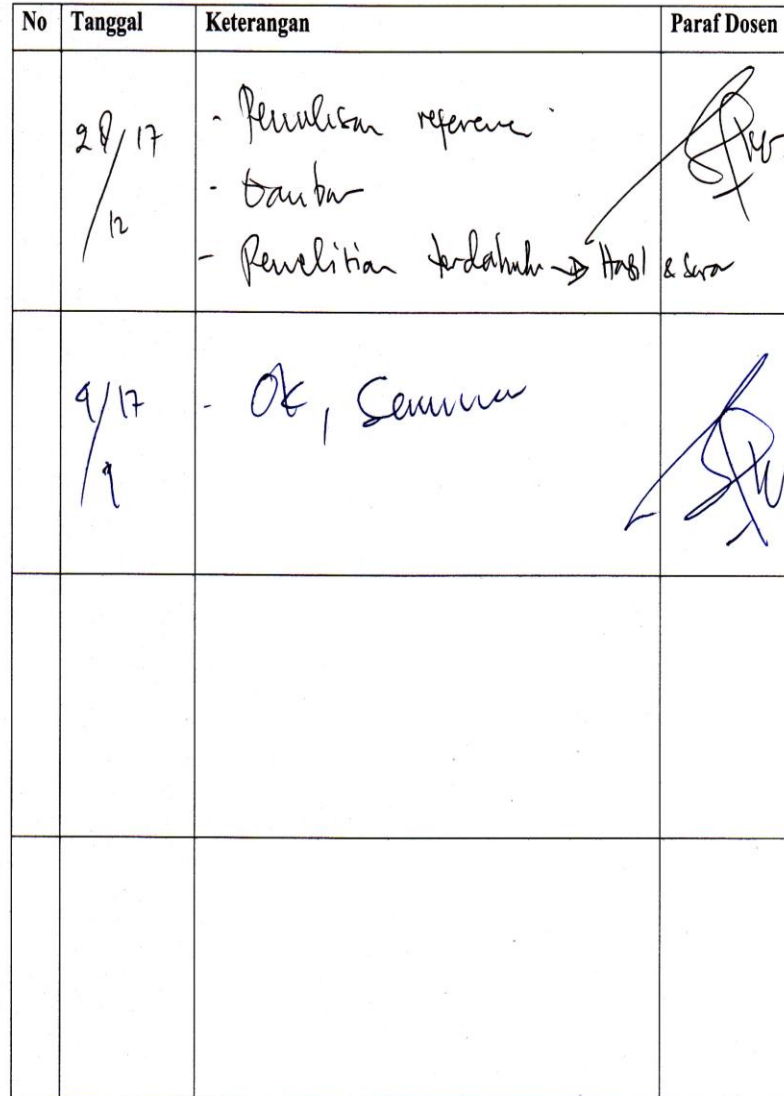 No Tanggal Keterangan Paraf Dosen
28/17
12
- Penulisan reference
- Gambar
- Penelitian terdahulu → Hasil & Saran
9/17
- Ok, Seminar